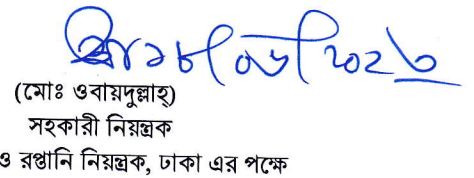 ১৮/০৬/২০২৩
(মোঃ ওবায়দুল্লাহ)
সহকারী নিয়ন্ত্রক
ও রপ্তানি নিয়ন্ত্রক, ঢাকা এর পক্ষে